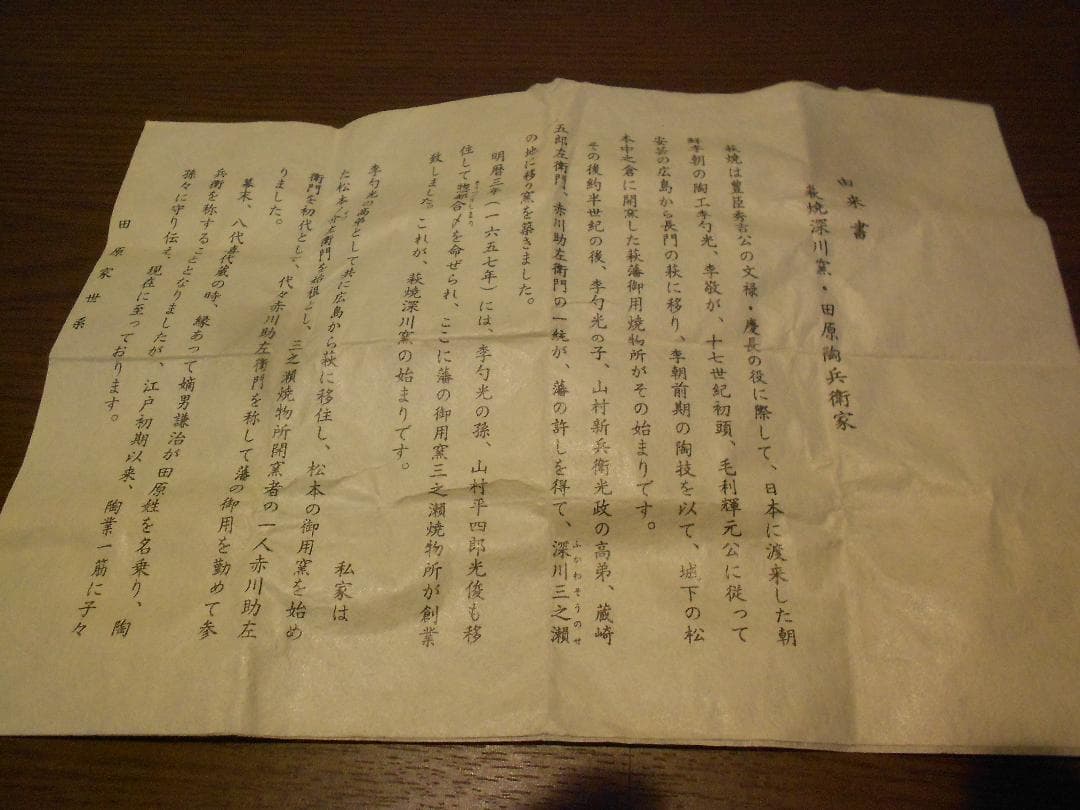 由来書
萩焼深川窯・田原陶兵衛家
萩焼は豊臣秀吉公の文禄・慶長の役に際して、日本に渡来した朝
鮮李朝の陶工李勺光、李敬が、十七世紀初頭、毛利輝元公に従って
安芸の広島から長門の萩に移り、李朝前期の陶技を以て、城下の松
本中之倉に開窯した萩藩御用焼物所がその始まりです。
その後約半世紀の後、李勺光の子、山村新兵衛光政の高弟、蔵崎
五郎左衛門、赤川助左衛門の一統が、藩の許しを得て、深川三之瀬
ふかわそうのせ
の地に移り窯を築きました。
明暦三年(一六五七年)には、李勺光の孫、山村平四郎光俊も移
住して惣都合〆を命ぜられ、ここに藩の御用窯三之瀬焼物所が創業
致しました。これが、萩焼深川窯の始まりです。
私家は
李勺光の高弟として共に広島から萩に移住し、松本の御用窯を始め
た松本ノ介左衛門を始祖とし、三之瀬焼物所開窯者の一人赤川助左
衛門を初代として、代々赤川助左衛門を称して藩の御用を勤めて参
りました。
幕末、八代喜代蔵の時、縁あって嫡男謙治が田原姓を名乗り、陶
兵衛を称することとなりましたが、江戸初期以来、陶業一筋に子々
孫々に守り伝え、現在に至っております。
田原家世系